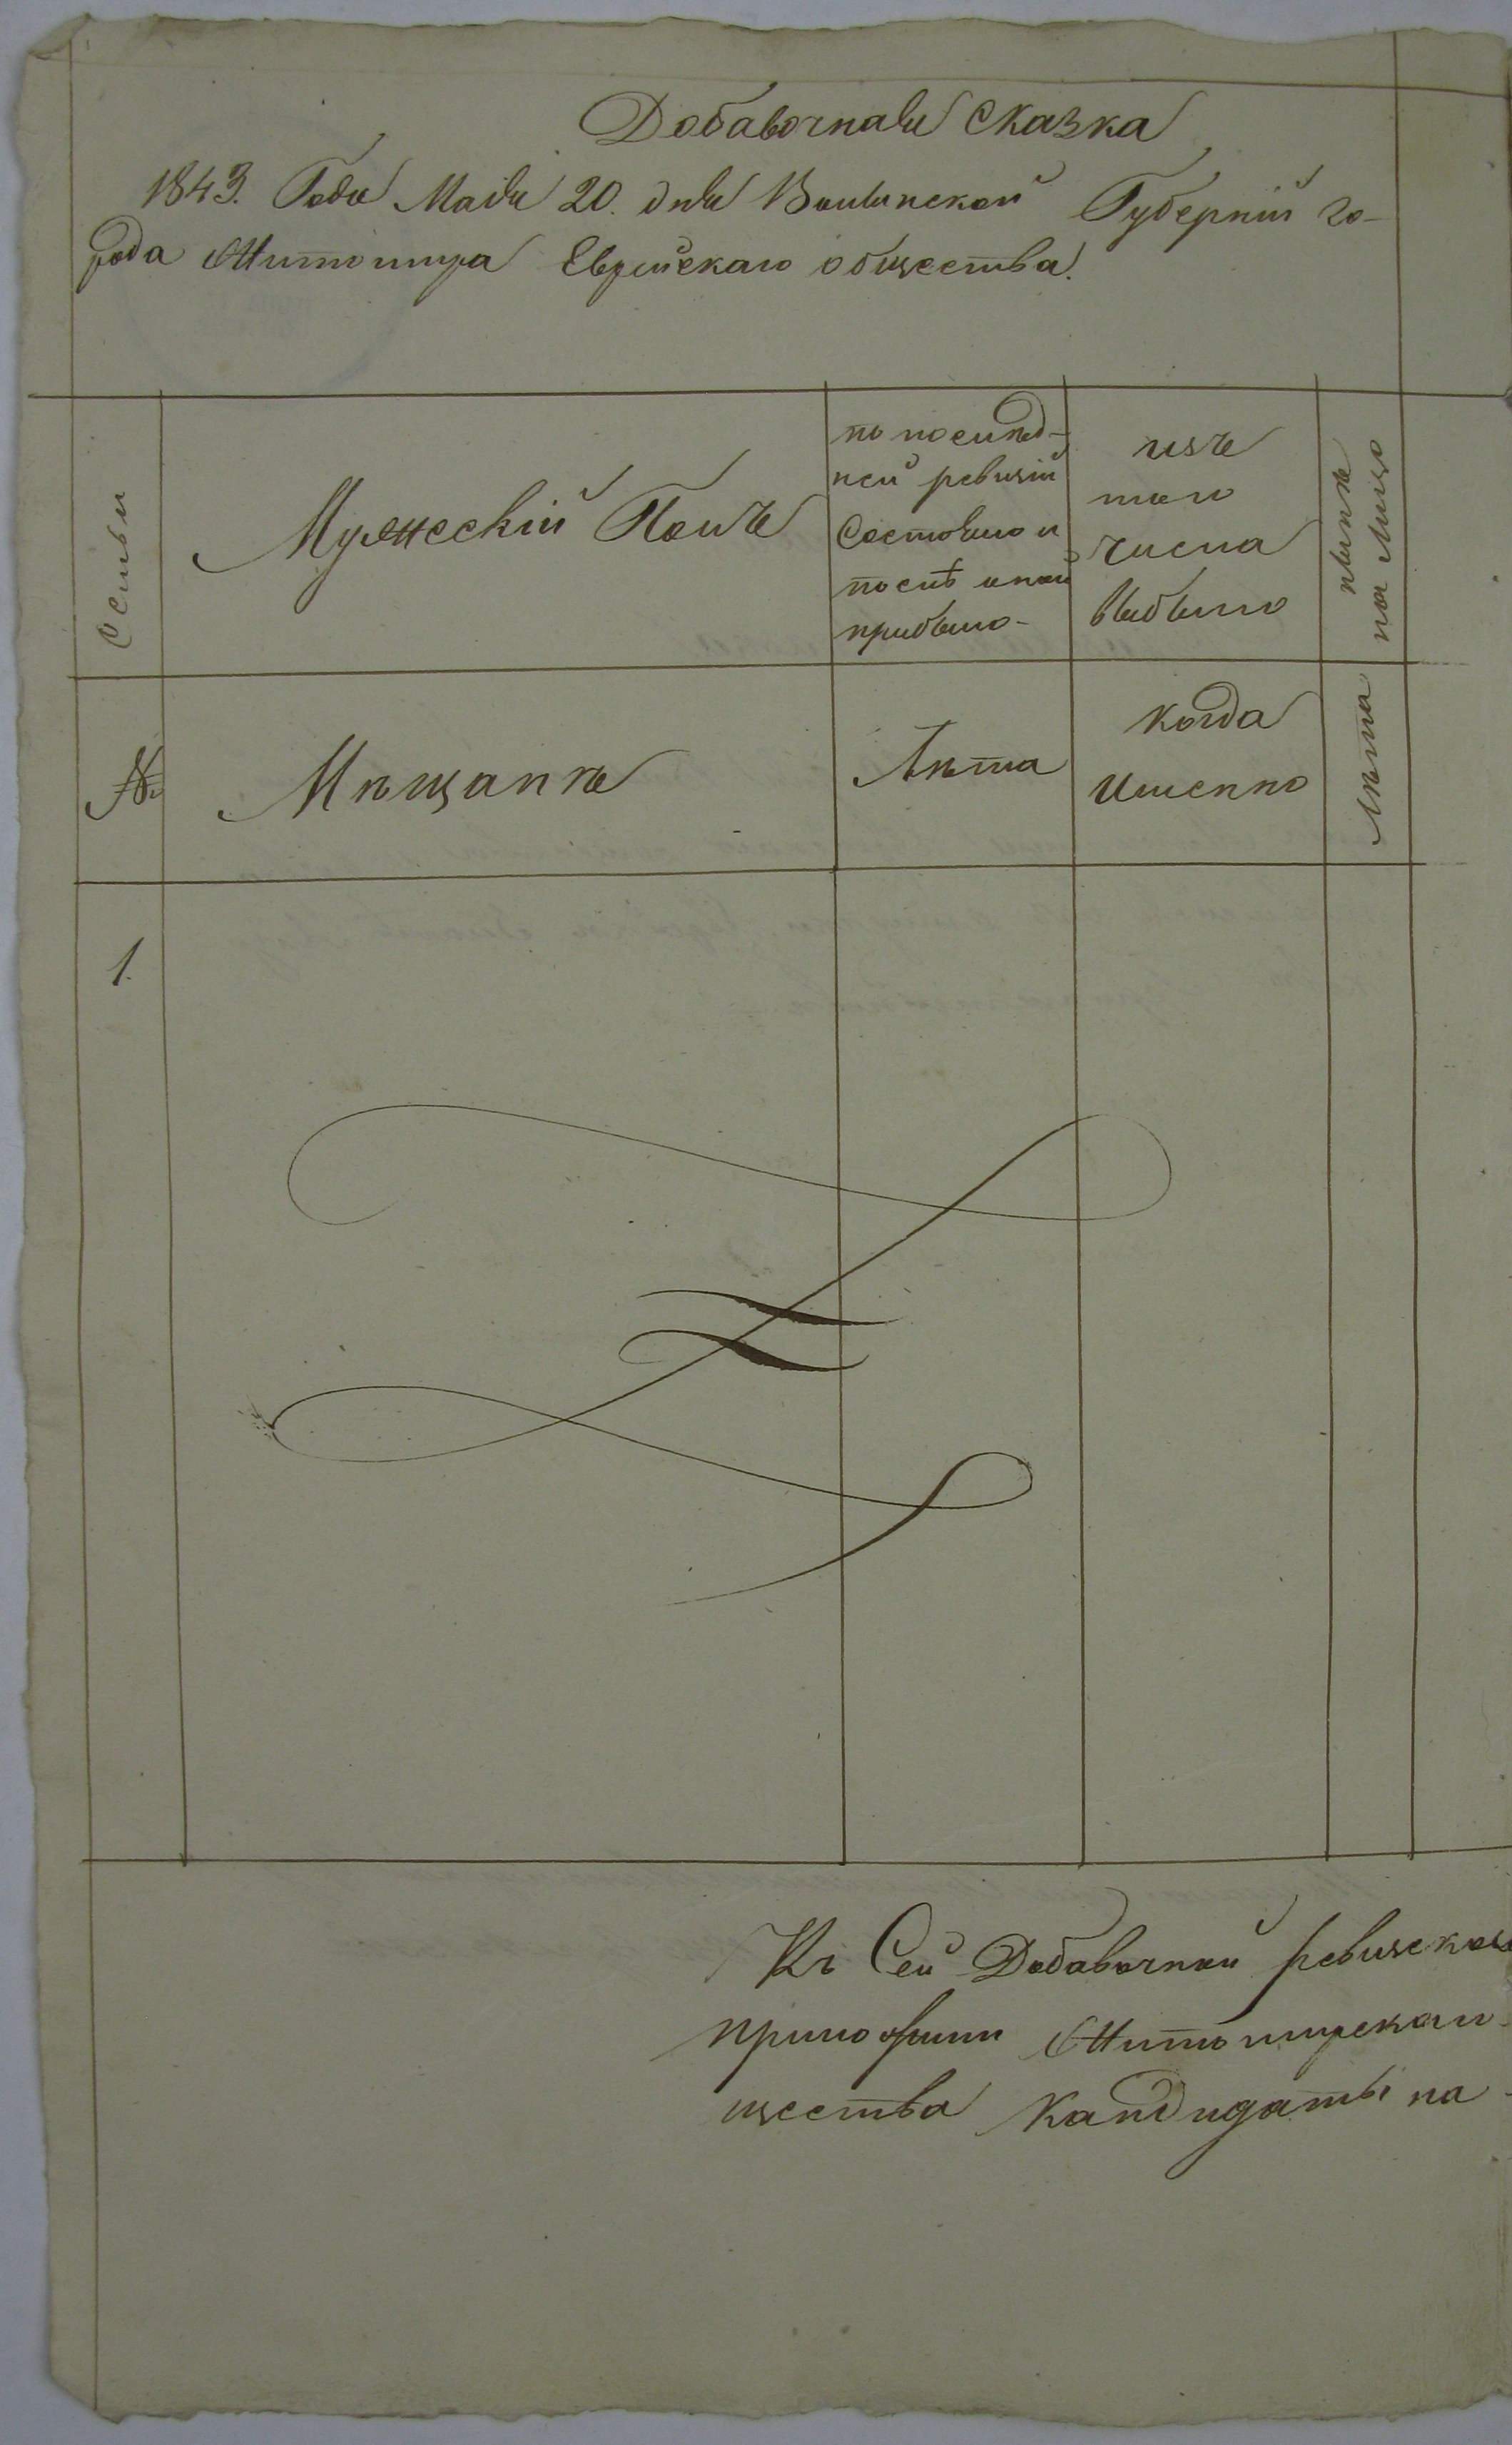 Добавочная Сказка
1843. Года Маія 20. дня Волынской Губерніи го-
рода Житомира Еврейскаго общества.
Семьи
Мужескій Полъ
по послѣд-
ней ревизіи
Состояло и
послѣ оной
прибыло-
изъ
того
числа
выбыло
нынѣ
на лицо
№
Мѣщанѣ
Лѣта
когда
Именно
Лѣта
1.
Къ Сей Добавочной ревизской
приложили Житомирскаго
щества Кандидаты на